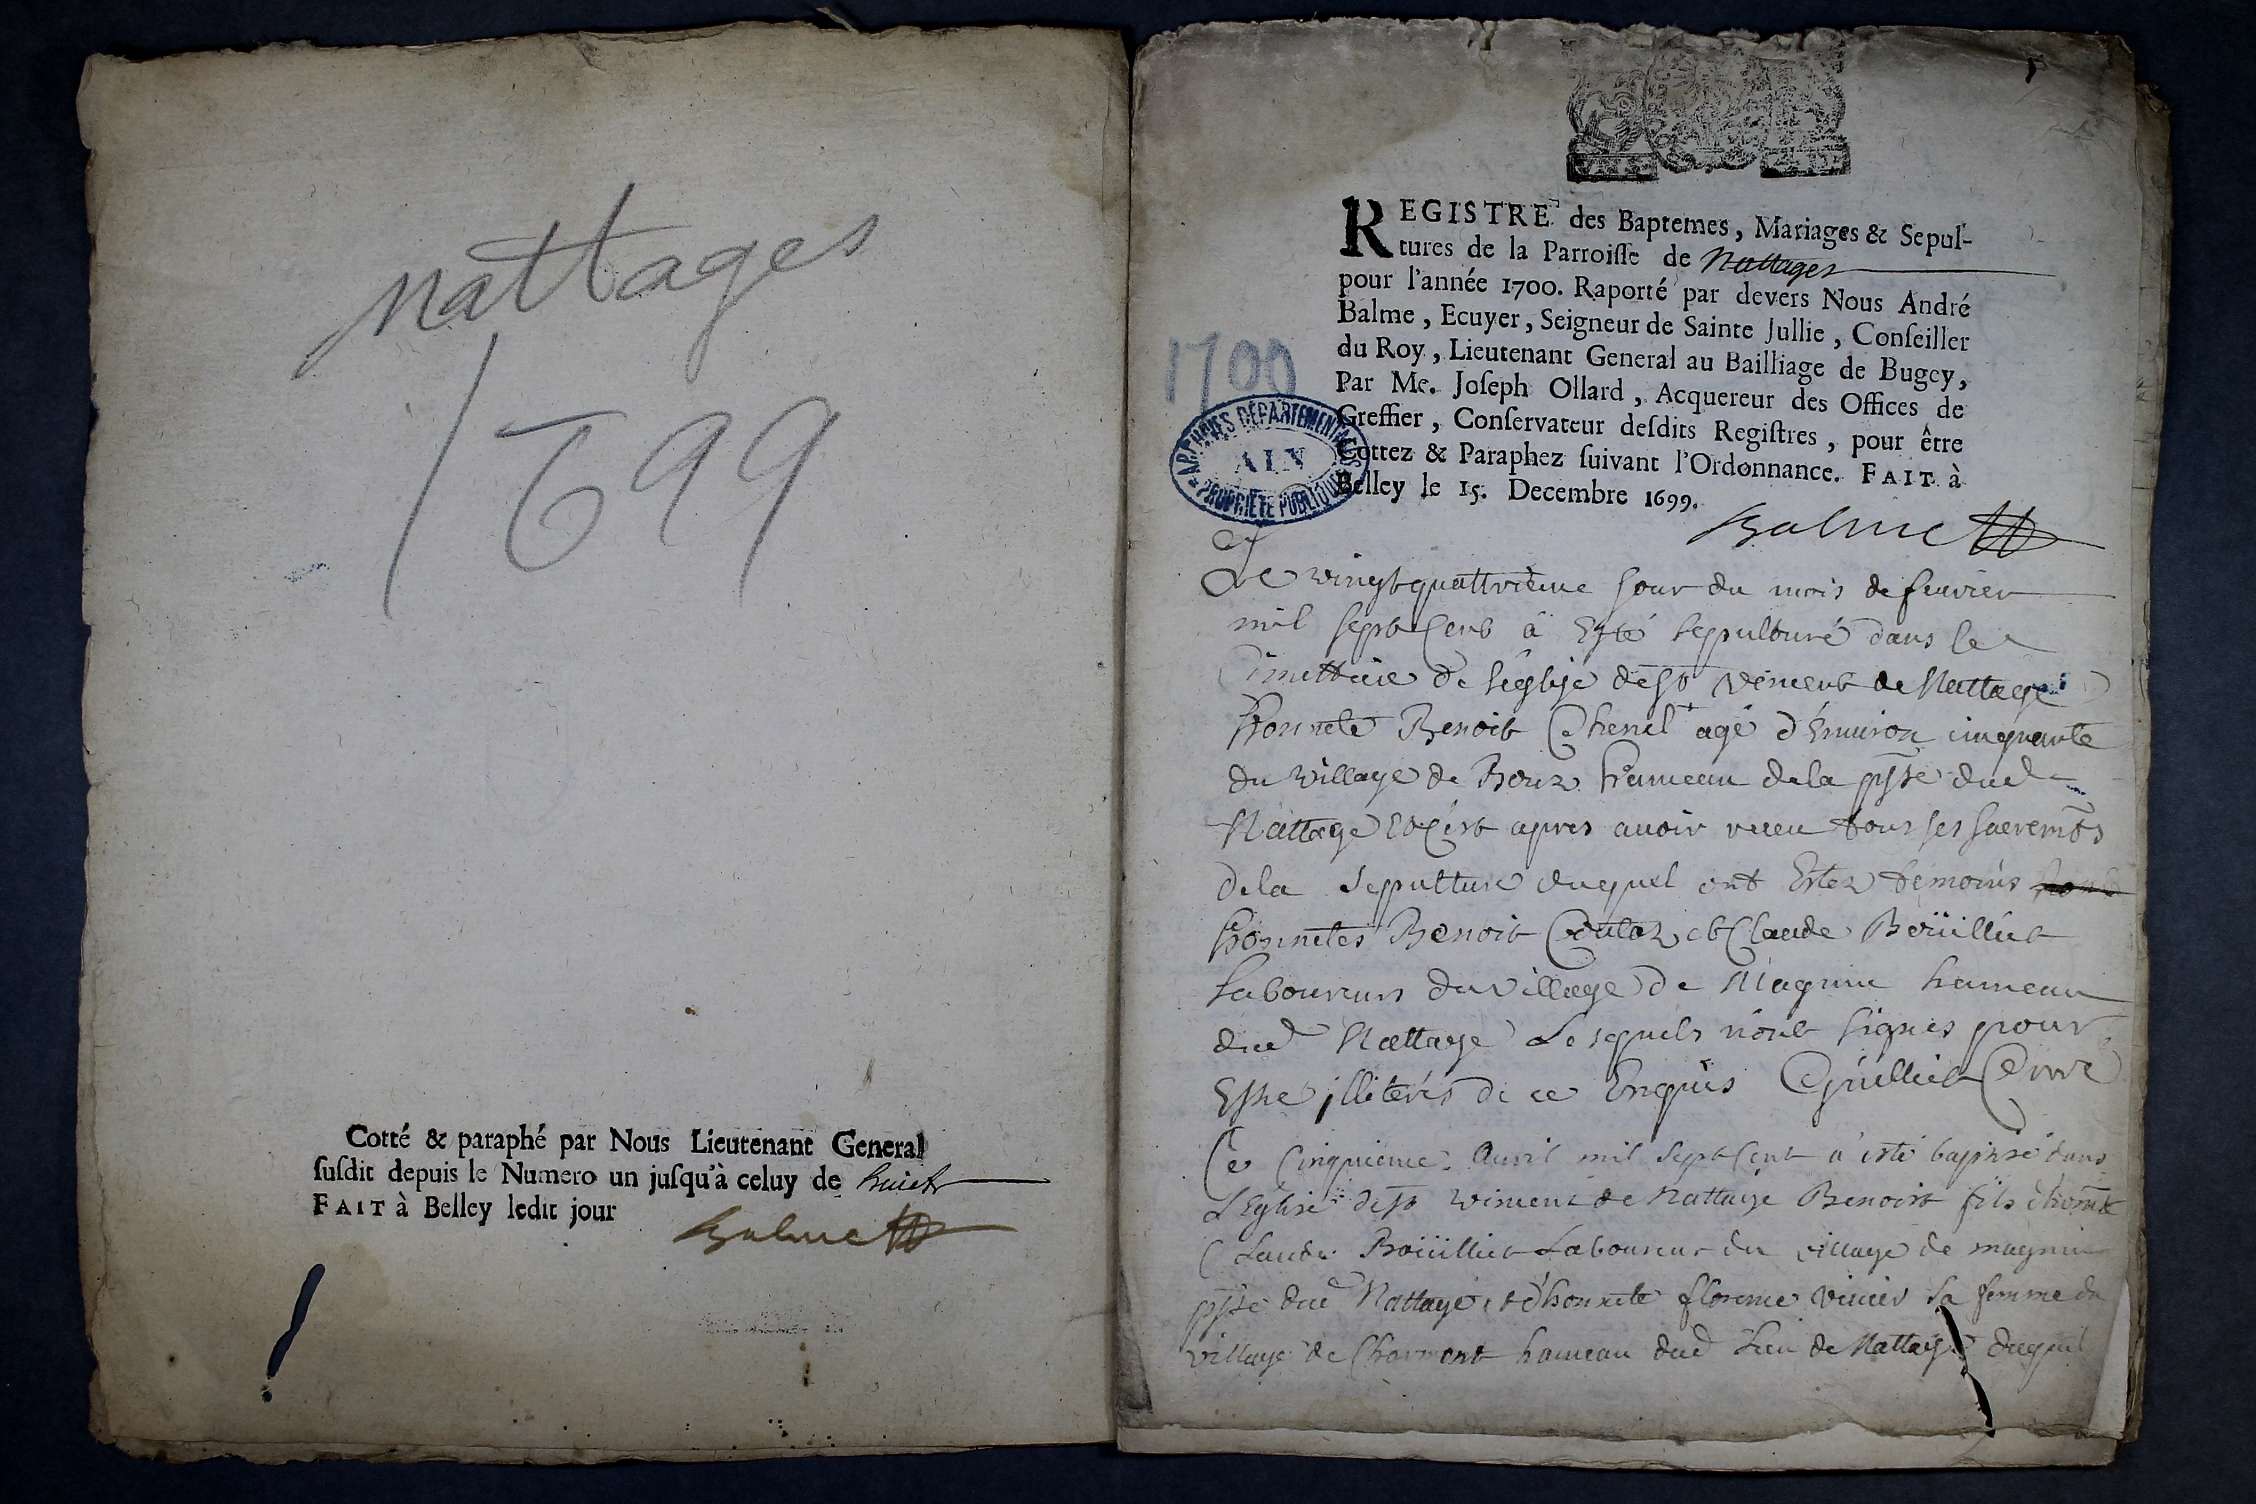 Nattages
1699
Cotté & paraphé par Nous Lieutenant General
ſuſdit depuis le Numero un juſqu'à celuy de huict
FAIT à Belley ledit jour
Balme
1700
ARCHIVES DÉPARTEMENTALES
AIN
PROPRIÉTÉ PUBLIQUE
REGISTRE des Baptemes, Mariages & Sepul-
tures de la Parroiſſe de Nattages
pour l'année 1700. Raporté par devers Nous André
Balme, Ecuyer, Seigneur de Sainte Jullie, Conſeiller
du Roy, Lieutenant General au Bailliage de Bugey,
Par Me. Joſeph Ollard, Acquereur des Offices de
Greffier, Conſervateur deſdits Regiſtres, pour être
Cottez & Paraphez ſuivant l'Ordonnance. FAIT à
Belley le 15. Decembre 1699.
Balme
Le vingtquattrieme jour du mois de feurier
mil sept Cent a Esté sepulturé dans le
Cimettiere de l'églize de St vincent de Nattage
honnete Benoit Chenel agé d'Enuiron cinquante
du village de hameau de la psse dud
Nattage apres auoir receu tous ses sacremts
de la sepulture duquel ont Estez temoins
honnetes Benoit et Claude Boüilliet
laboureurs du village de Magnin hameau
dud Nattage Lesquels n'ont signés pour
Estre illiterés de ce Enquis Cuilliet Curé
Le Cinquieme Auril mil sept Cent a esté baptisé dans
L'Eglise de St vincent de Nattage Benoist fils d'honnte
Claude Boüilliet Laboureur du village de magnin
psse dud Nattage et d'honnete florence sa femme du
village de Charmont hameau dud Lieu de Nattage duquel